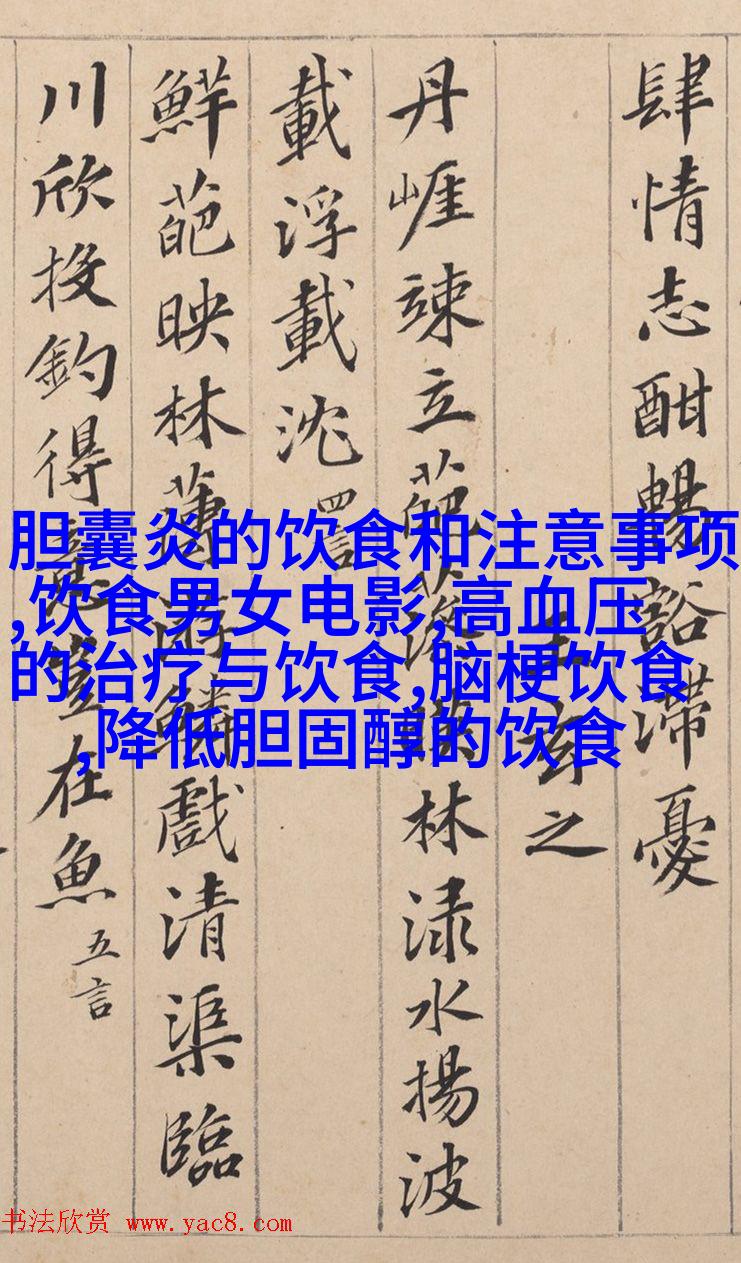 肆情志酣暢豁滯憂
王玄之
丹崕竦立葩藻暎林渌水揚波
載浮載沈 四言
鮮葩映林薄游鱗戲清渠臨
川欣投釣得意豈在魚 五言
胆囊炎的饮食和注意事项
,饮食男女电影,高血压
的治疗与饮食,脑梗饮食
,降低胆固醇的饮食
书法欣赏 www.yac8.com